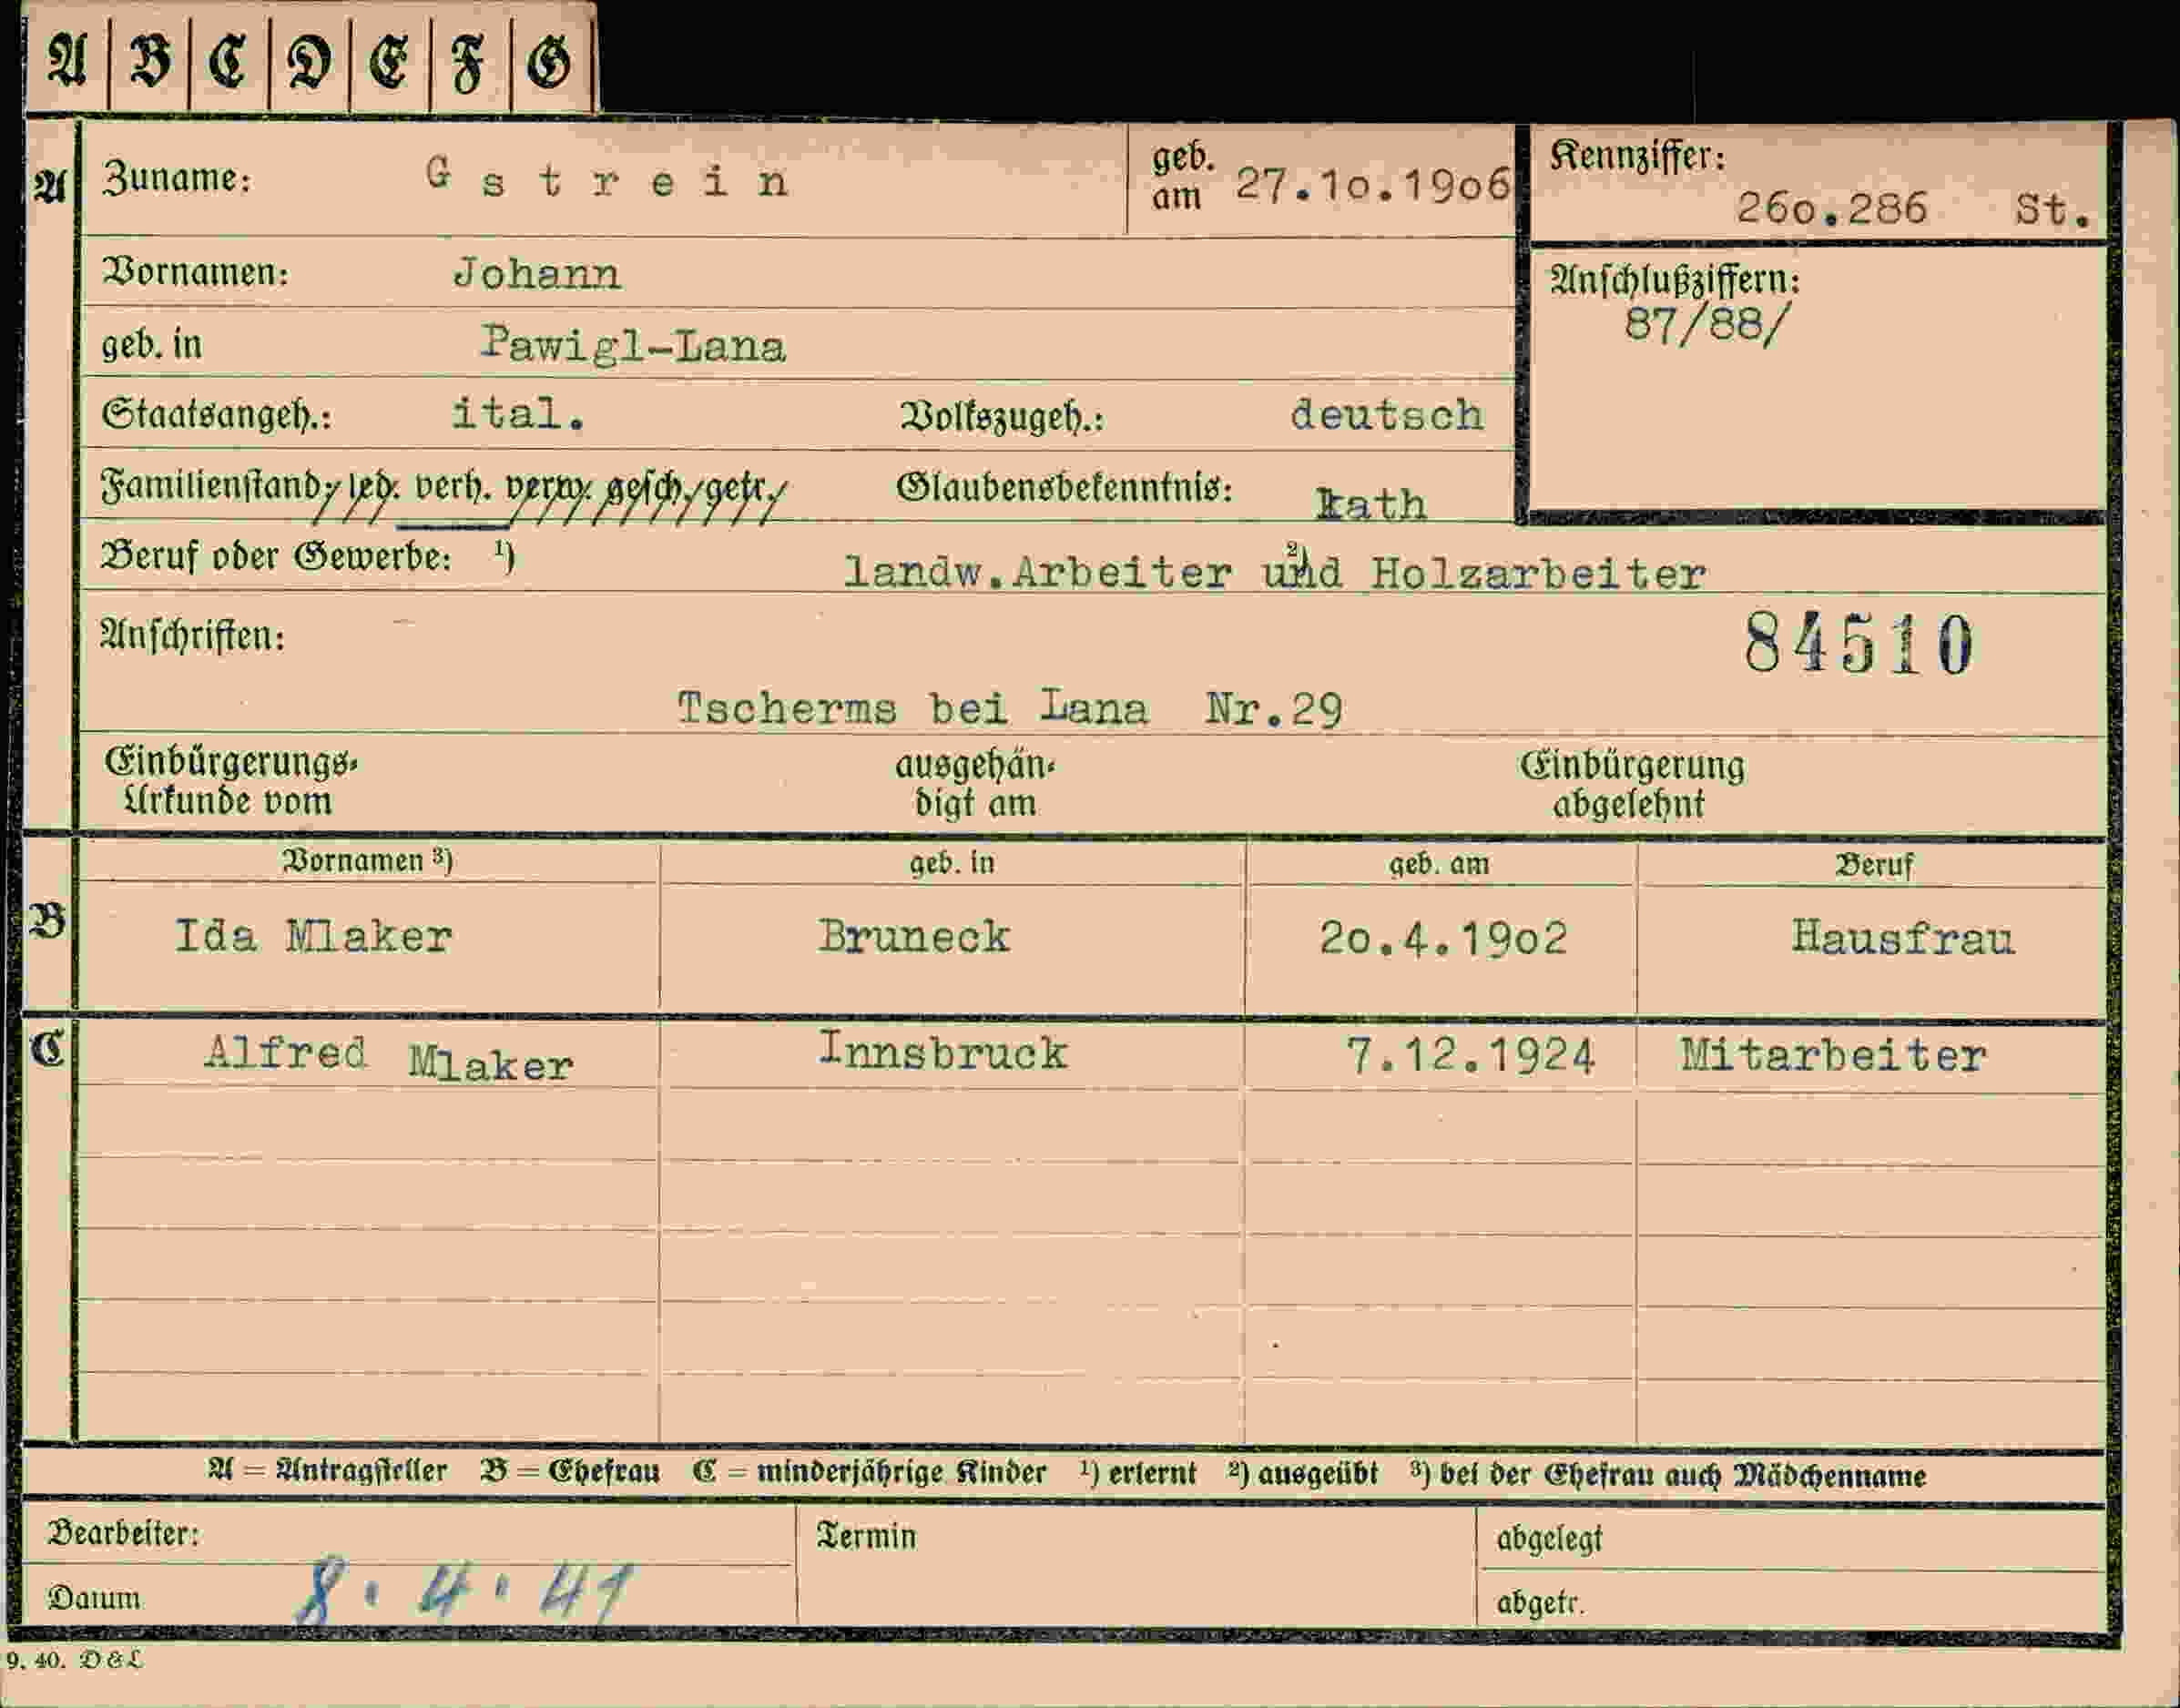 A B C D E F G
A Zuname: Gstrein geb. am 27.1o.19o6 Kennziffer: 26o.286 St.
Vornamen: Johann Anschlußziffern: 87/88/
geb. in Pawigl-Lana
Staatsangeh.: ital. Volkszugeh.: deutsch
Familienstand: led. verh. verw. gesch. getr. Glaubensbekenntnis: kath
Beruf oder Gewerbe: ¹) landw.Arbeiter und ²) Holzarbeiter
Anschriften: 84510
Tscherms bei Lana Nr.29
Einbürgerungs-Urkunde vom ausgehändigt am Einbürgerung abgelehnt
Vornamen ³) geb. in geb. am Beruf
B Ida Mlaker Bruneck 2o.4.19o2 Hausfrau
C Alfred Mlaker Innsbruck 7.12.1924 Mitarbeiter
A = Antragsteller B = Ehefrau C = minderjährige Kinder ¹) erlernt ²) ausgeübt ³) bei der Ehefrau auch Mädchenname
Bearbeiter: Termin abgelegt
Datum 8.4.41 abgetr.
9. 40. D & L